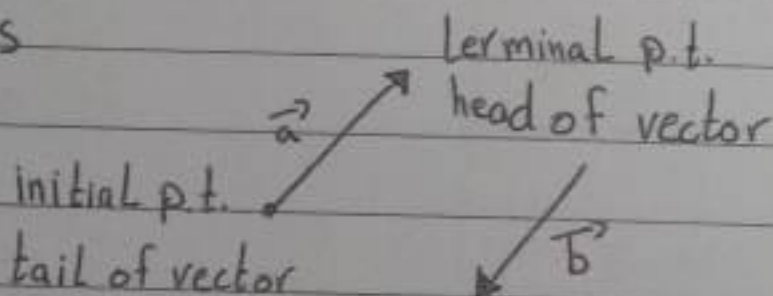 s
terminal p.t.
head of vector
a
initial p.t.
tail of vector
b